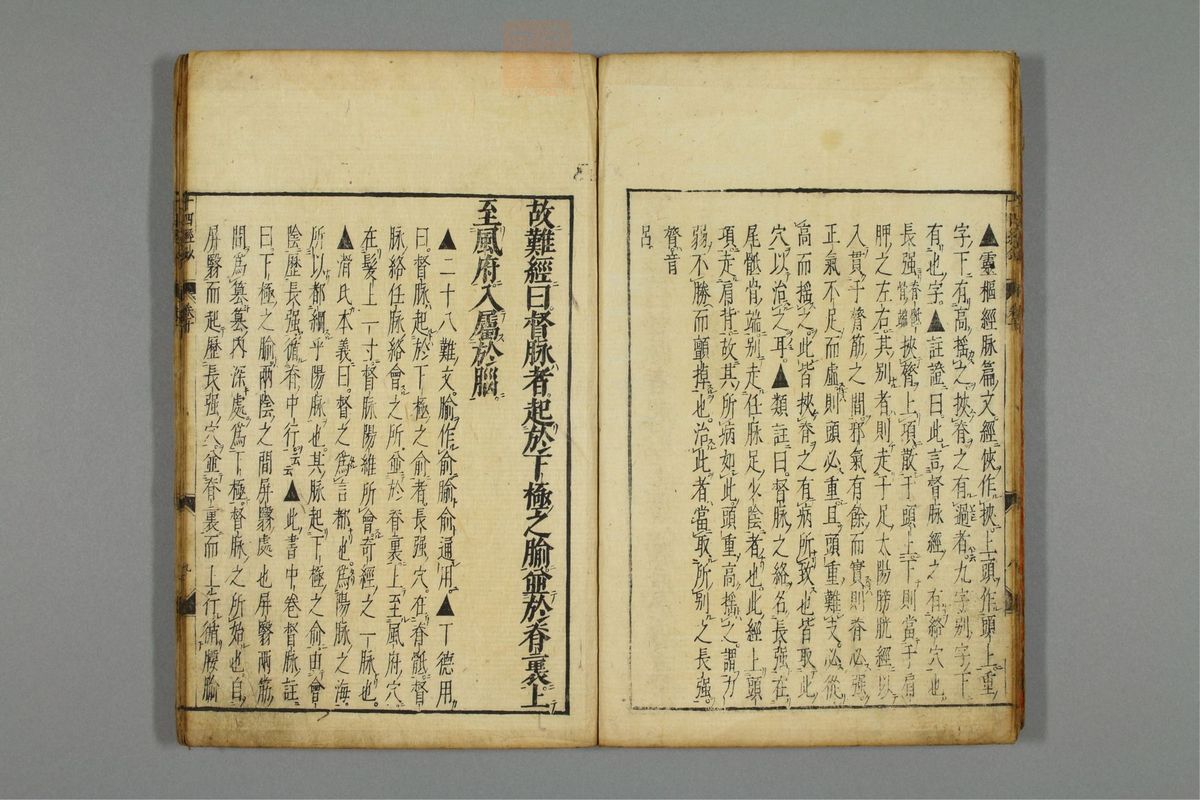 ▲靈樞經脉篇文經俠作挾上頭作頭上重
字下有高揺之挾脊之有過者九字别字下
有也字▲註證曰此言督脉經之有絡穴也
長强脊骶骨端挾膂上項散于頭上下則當于肩
胛之左右其别者則走于足太陽膀胱經以
入貫于膂筋之間邪氣有餘而實則脊必强
正氣不足而虚則頭必重且頭重難支必從
高而揺之此皆挾脊之有病所致也皆取此
穴以治之耳▲類註曰督脉之絡名長强在
尾骶骨端别走任脉足少陰者也此經上頭
項走肩背故其所病如此頭重高揺之謂力
弱不勝而顫掉也治此者當取所别之長强
膂音
呂
故難經曰督脉者起於下極之腧並於脊裏上
至風府入屬於腦
▲二十八難文腧作俞腧俞通用▲丁德用
曰督脉起於下極之俞者長强穴在脊骶督
脉絡任脉絡會之所並於脊裏上至風府穴
在髮上一寸督脉陽維所會奇經之一脉也
▲滑氏本義曰督之爲言都也爲陽脉之海
所以都綱乎陽脉也其脉起下極之俞由會
陰歷長强循脊中行云云▲此書中卷督脉註
曰下極之腧兩陰之間屏翳處也屏翳兩筋
間爲篡篡内深處爲下極督脉之所始也自
屏翳而起歷長强穴並脊裏而上行循腰腧